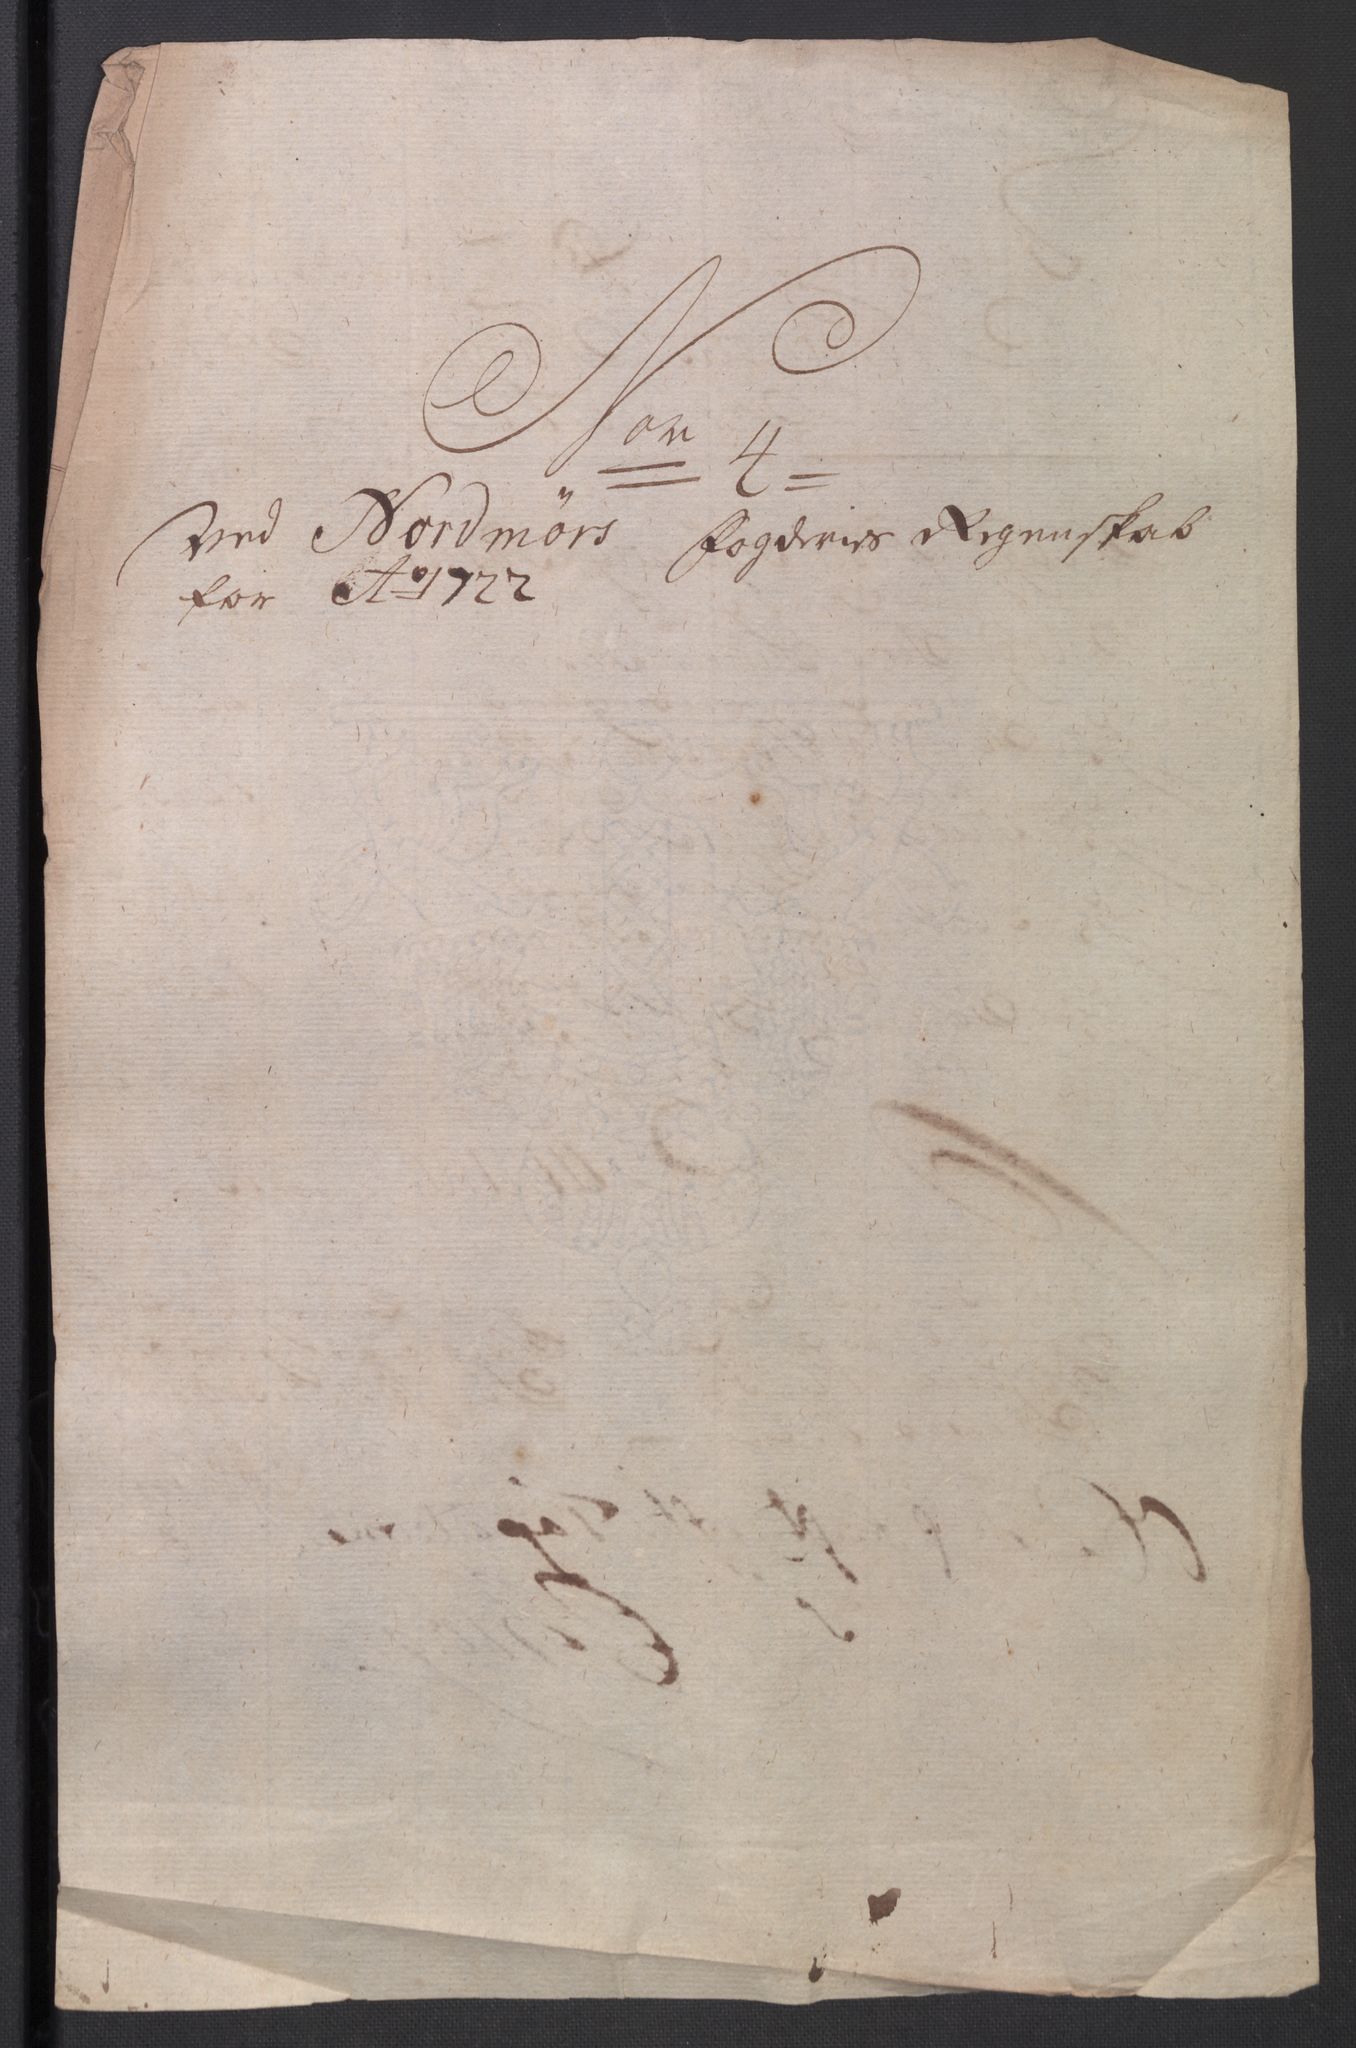 Non 4
Ved Nordmörs Fogderies Regenskab
for Ao 1722